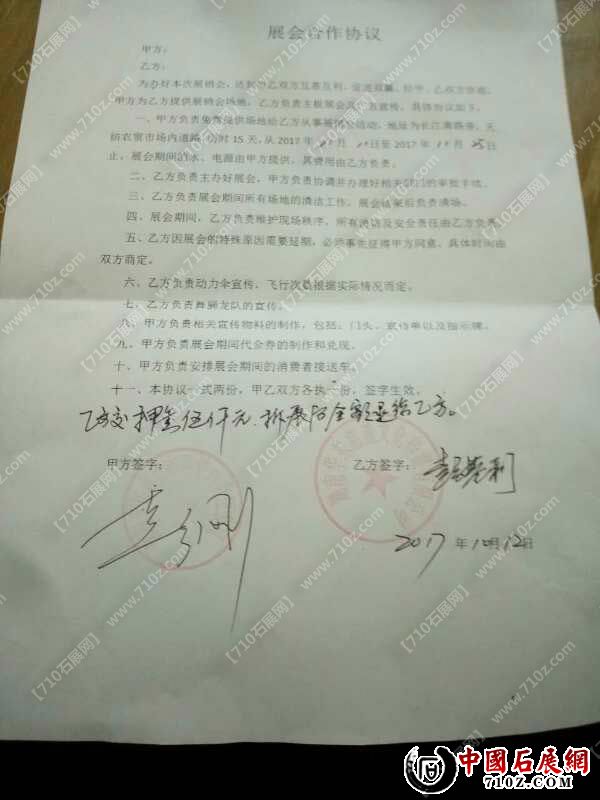 展会合作协议
甲方：
乙方：
为办好本次展销会，达到甲乙双方互惠互利，促进双赢，经甲、乙双方
甲方为乙方提供展销会场地，乙方负责主板展会及
一、甲方负责免费提供场地给乙方从事展销会活动，地址为长江
农贸市场内道路，为时 15 天，从 2017 年 月 日至 2017 年 月 日
止，展会期间的水、电源由甲方提供，其费用由乙方负责。
二、乙方负责主办好展会，甲方负责协调并办理好相关部门的审批手续。
三、乙方负责展会期间所有场地的清洁工作，展会结束后负责清场。
四、展会期间，乙方负责维护现场秩序，所有消防及安全责任由乙方负责
五、乙方因展会的特殊原因需要延期，必须事先征得甲方同意，具体时间由
双方商定。
六、乙方负责动力伞宣传，飞行次数根据实际情况而定。
七、乙方负责舞狮龙队的宣传。
八、甲方负责相关宣传物料的制作，包括：门头、宣传单以及指示牌。
九、甲方负责展会期间代金券的制作和兑现。
十、甲方负责安排展会期间的消费者接送车。
十一、本协议一式两份，甲乙双方各执一份，签字生效。
乙方交押金伍仟元，拆展后全额退给乙方。
甲方签字：
乙方签字：
2017 年 10 月 12 日
【710石展网】 www.710z.com
中國石展網
710Z.COM